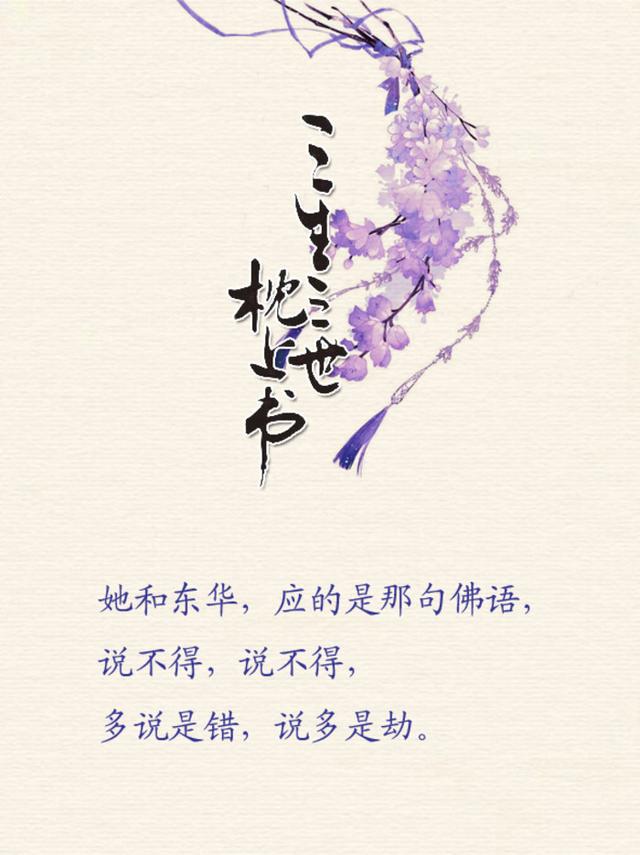 三生三世
枕上书
她和东华，应的是那句佛语，
说不得，说不得，
多说是错，说多是劫。